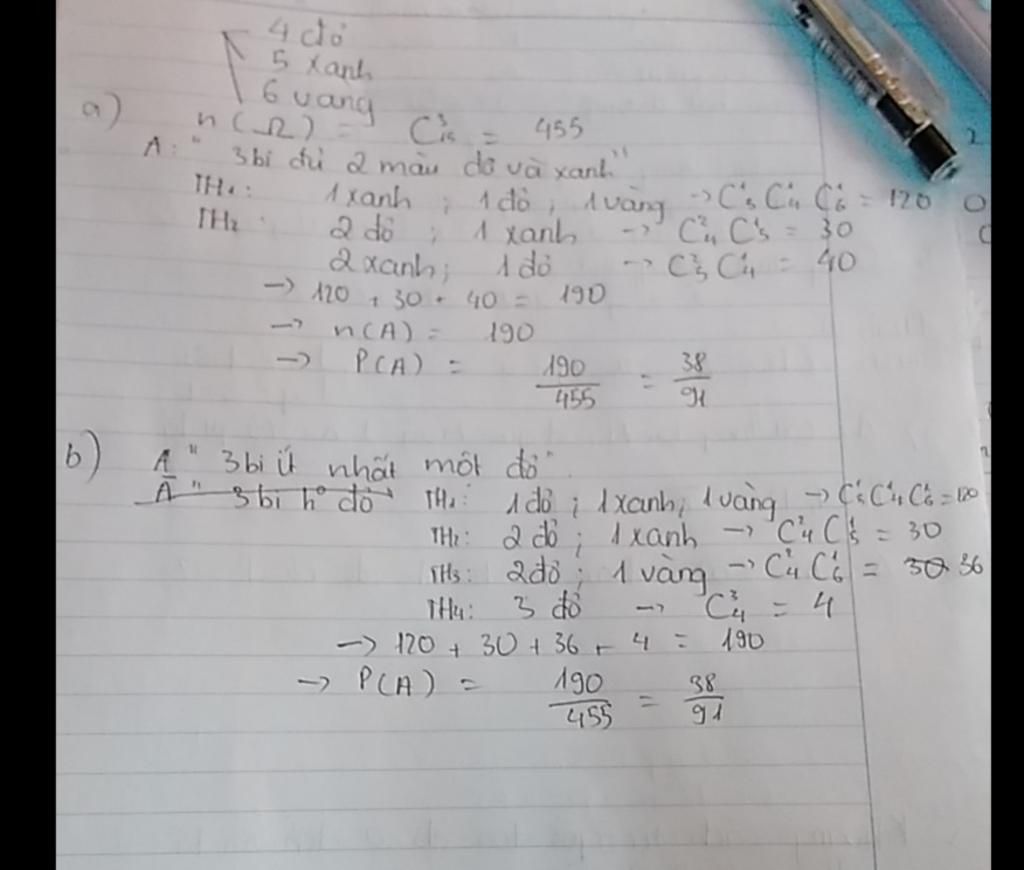 4 đỏ
5 xanh
6 vàng
a)
n(Ω) = C³₁₅ = 455
A: " 3 bi đủ 2 màu đỏ và xanh"
TH₁: 1 xanh ; 1 đỏ ; 1 vàng → C¹₅ C¹₄ C¹₆ = 120
TH₂: 2 đỏ ; 1 xanh → C²₄ C¹₅ = 30
2 xanh; 1 đỏ → C²₅ C¹₄ = 40
→ 120 + 30 + 40 = 190
→ n(A) = 190
→ P(A) = 190/455 = 38/91
b) A " 3 bi ít nhất một đỏ"
A̅ " 3 bi ho đỏ TH₁: 1 đỏ ; 1 xanh; 1 vàng → C¹₅ C¹₄ C¹₆ = 120
TH₂: 2 đỏ ; 1 xanh → C²₄ C¹₅ = 30
TH₃: 2 đỏ ; 1 vàng → C²₄ C¹₆ = 30 36
TH₄: 3 đỏ → C³₄ = 4
→ 120 + 30 + 36 + 4 = 190
→ P(A) = 190/455 = 38/91